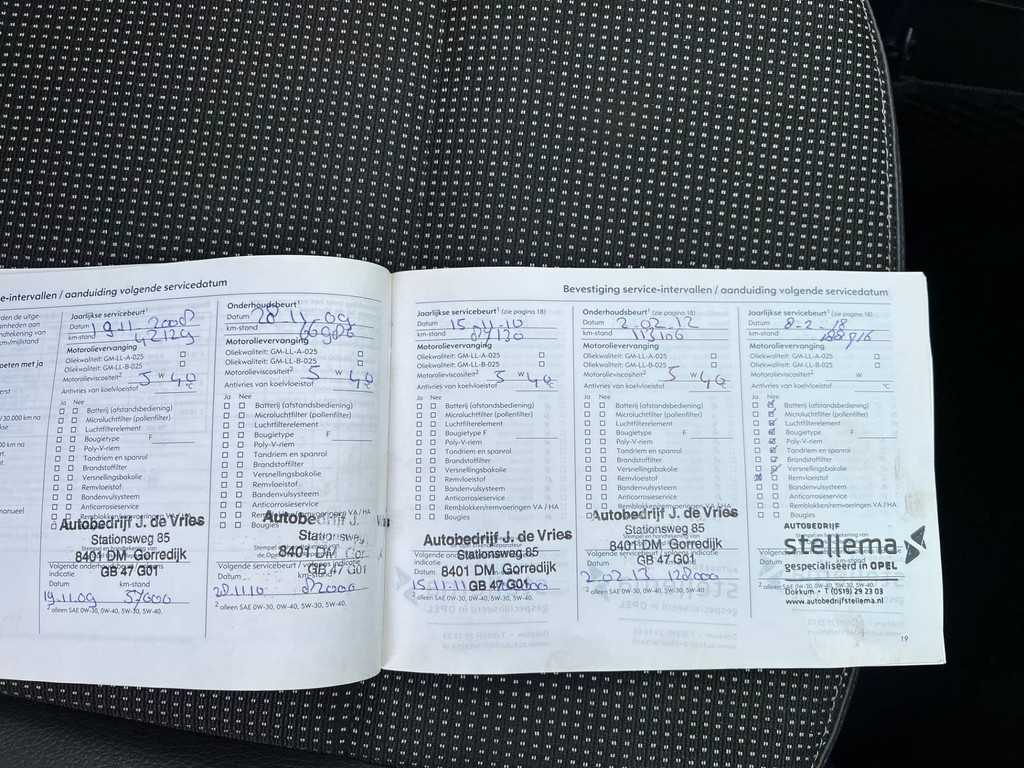 e-intervallen / aanduiding volgende servicedatum
rden de uitge-
mheden aan
ndtekening van
cm/mijlstand
oeten met ja
erst
30.000 km na
kse
00 km na
rt.
manueel
Jaarlijkse servicebeurt¹
Datum 19.11.2008
km-stand 42129
Motorolievervanging
Oliekwaliteit: GM-LL-A-025
Oliekwaliteit: GM-LL-B-025
Motorolieviscositeit² 5 W 40
Antivries van koelvloeistof
Ja Nee
Batterij (afstandsbediening)
Microluchtfilter (pollenfilter)
Luchtfilterelement
Bougietype F
Poly-V-riem
Tandriem en spanrol
Brandstoffilter
Versnellingsbakolie
Remvloeistof
Bandenvulsysteem
Anticorrosieservice
Autobedrijf J. de Vries
Stationsweg 85
8401 DM Gorredijk
GB 47 G01
indicatie
Datum km-stand
19.11.09 57000
² alleen SAE 0W-30, 0W-40, 5W-30, 5W-40.
Onderhoudsbeurt¹
Datum 28 11 09
km-stand
Motorolievervanging
Oliekwaliteit: GM-LL-A-025
Oliekwaliteit: GM-LL-B-025
Motorolieviscositeit² 5 W 40
Antivries van koelvloeistof
Ja Nee
Batterij (afstandsbediening)
Microluchtfilter (pollenfilter)
Luchtfilterelement
Bougietype F
Poly-V-riem
Tandriem en spanrol
Brandstoffilter
Versnellingsbakolie
Remvloeistof
Bandenvulsysteem
Anticorrosieservice
Bougies
Autobedrijf J.
8401 DM Gor
GB 47 G01
Volgende servicebeurt / volgens indicatie
Datum km-stand
28.11.10 82000
² alleen SAE 0W-30, 0W-40, 5W-30, 5W-40.
Bevestiging service-intervallen / aanduiding volgende servicedatum
Jaarlijkse servicebeurt¹ (zie pagina 18)
Datum
km-stand
Motorolievervanging
Oliekwaliteit: GM-LL-A-025
Oliekwaliteit: GM-LL-B-025
Motorolieviscositeit² 5 W 40
Antivries van koelvloeistof
Ja Nee
Batterij (afstandsbediening)
Microluchtfilter (pollenfilter)
Luchtfilterelement
Bougietype F
Poly-V-riem
Tandriem en spanrol
Brandstoffilter
Versnellingsbakolie
Remvloeistof
Bandenvulsysteem
Anticorrosieservice
Remblokken/remvoeringen VA / HA
Bougies
Autobedrijf J. de Vries
Stationsweg 85
8401 DM Gorredijk
GB 47 G01
Datum
15.11.11
² alleen SAE 0W-30, 0W-40, 5W-30, 5W-40.
Onderhoudsbeurt¹ (zie pagina 18)
Datum 2.02.12
km-stand 113106
Motorolievervanging
Oliekwaliteit: GM-LL-A-025
Oliekwaliteit: GM-LL-B-025
Motorolieviscositeit² 5 W 40
Antivries van koelvloeistof
Ja Nee
Batterij (afstandsbediening)
Microluchtfilter (pollenfilter)
Luchtfilterelement
Bougietype F
Poly-V-riem
Tandriem en spanrol
Brandstoffilter
Versnellingsbakolie
Remvloeistof
Bandenvulsysteem
Anticorrosieservice
Remblokken/remvoeringen VA / HA
Autobedrijf J. de Vries
Stationsweg 85
8401 DM Gorredijk
GB 47 G01
Datum
2.02.13 128000
² alleen SAE 0W-30, 0W-40, 5W-30, 5W-40.
Jaarlijkse servicebeurt¹ (zie pagina 18)
Datum 8-2-18
km-stand
Motorolievervanging
Oliekwaliteit: GM-LL-A-025
Oliekwaliteit: GM-LL-B-025
Motorolieviscositeit² W
Antivries van koelvloeistof °C
Ja Nee
Batterij (afstandsbediening)
Microluchtfilter (pollenfilter)
Luchtfilterelement
Bougietype F
Poly-V-riem
Tandriem en spanrol
Brandstoffilter
Versnellingsbakolie
Remvloeistof
Bandenvulsysteem
Anticorrosieservice
Remblokken/remvoeringen VA / HA
Bougies
AUTOBEDRIJF
stellema
gespecialiseerd in OPEL
Datum
² alleen SAE 0W-30, 0W-40, 5W-30, 5W-40.
Dokkum • T (0519) 29 23 03
www.autobedrijfstellema.nl
19